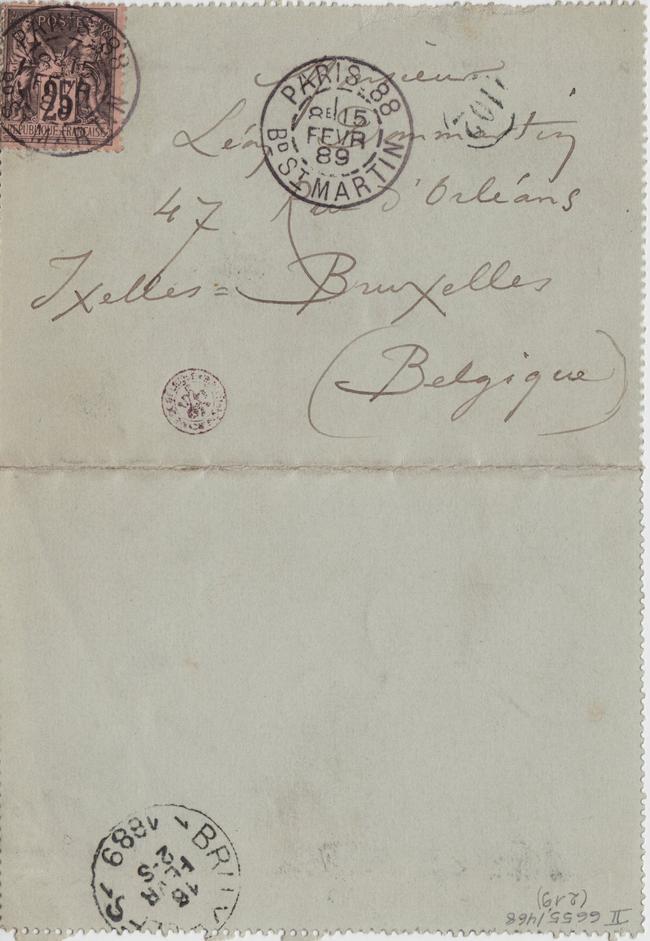 POSTES
25
REPUBLIQUE FRANÇAISE
PARIS 88
8E 15
FEVR
89
BD ST MARTIN
Monsieur
Léon Dommartin
47 rue d'Orléans
Ixelles = Bruxelles
(Belgique)
1889
FEVR
2-S
II 6655/468
(219)